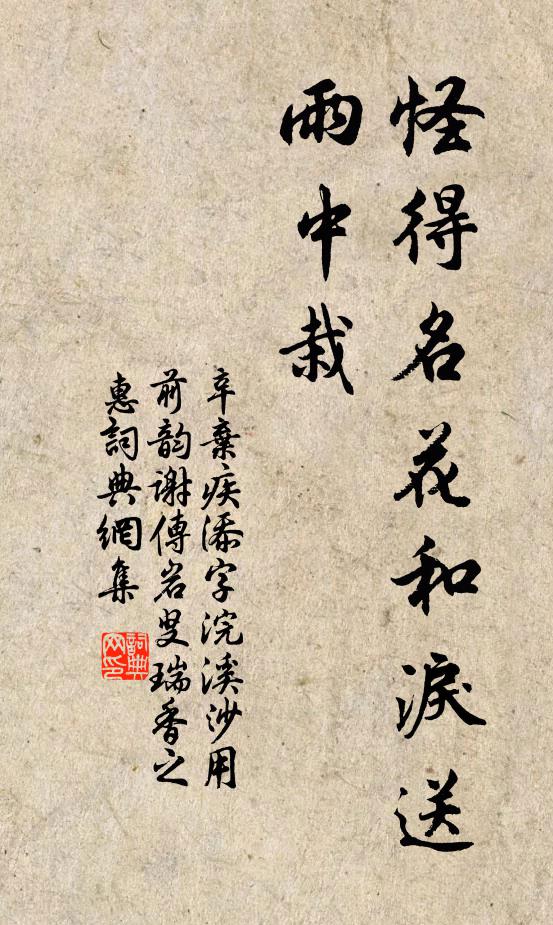 怪得名花和淚送
雨中栽
辛棄疾添字浣溪沙用
前韵謝傅岩叟瑞香之
惠詞典網集
詞典
网印